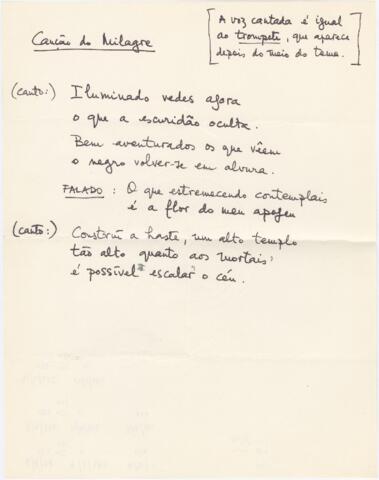 Canção do Milagre
[A voz cantada é igual
ao trompete, que aparece
depois do meio do tema.]
(canto:) Iluminado vedes agora
o que a escuridão oculta.
Bem aventurados os que vêem
o negro volver-se em alvura.
FALADO: O que estremecendo contemplais
é a flor do meu apogeu
(canto:) Constrói a haste, um alto templo
tão alto quanto aos mortais
é possível escalar o céu.